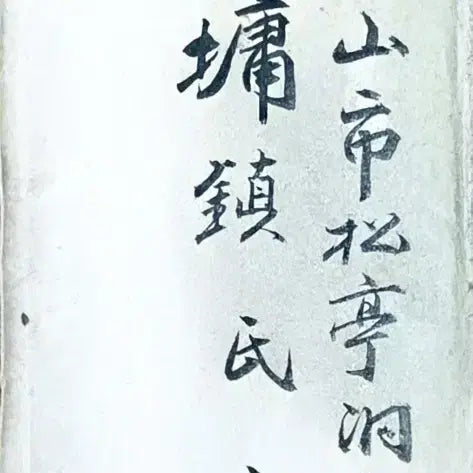 山市松亭洞
墉鎮氏